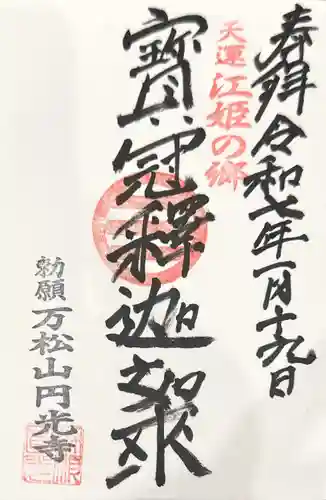 奉拝令和七年一月十九日
天運江姫の郷
寳冠釋迦如来
勅願万松山円光寺